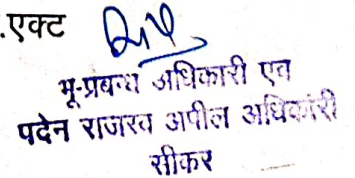 .एक्ट
भू-प्रबन्ध अधिकारी एव
पदेन राजस्व अपील अधिकारी
सीकर